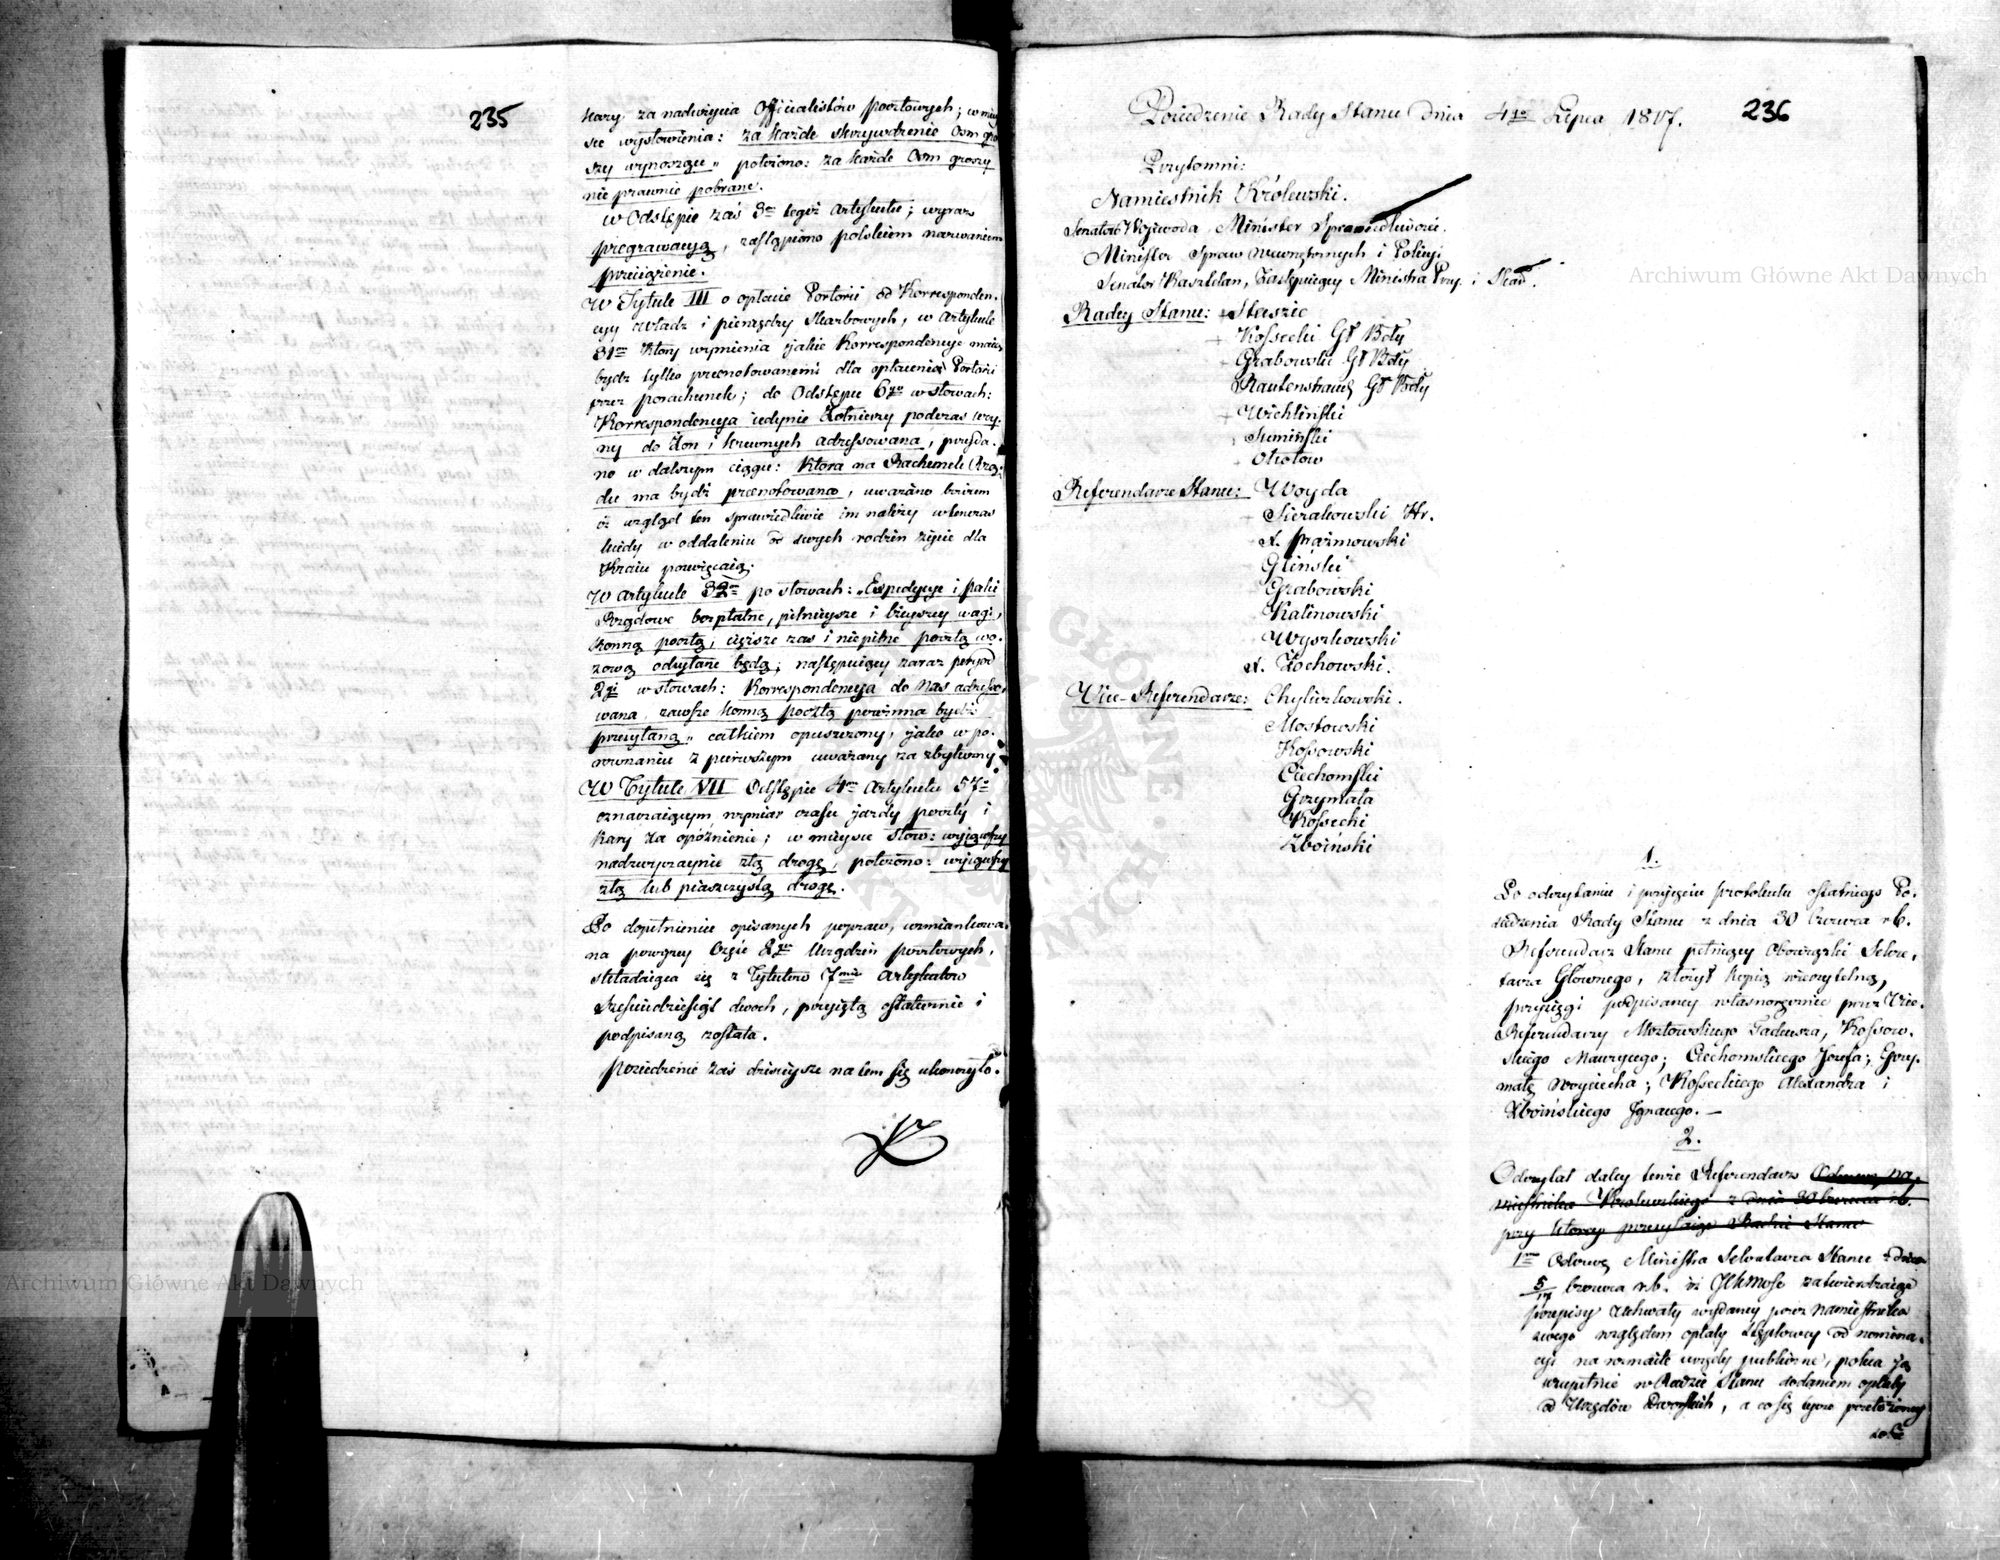 235
kary za nadużycia Officialistów pocztowych; w miey
sce wysłowienia: za każde skrzywdzenie Osm gro
szy wynoszące" położono: za każde Osm groszy
nie prawnie pobrane.
w Odstępie zaś 3m tegoż Artykułu; wyraz
pregrawacyą, zastąpiono polskiem nazwaniem
przeciążenie.
W Tytule III o opłacie Portorii od Korresponden,
cyy Władz i pieniędzy Skarbowych, w Artykule
31m który wymienia jakie Korrespondencye maią
bydz tylko przenotowanemi dla opłacenia Portorii
przez porachunek; do Odstępu 6go w słowach:
Korrespondencya iedynie Żołnierzy podczas woy,
ny do żon i krewnych adressowana, przyda,
no w dalszym ciągu: która na Rachunek Rzą,
du ma bydź przenotowana, uważano bowiem
iż wzgląd ten sprawiedliwie im należy wtenczas
kiedy w oddaleniu od swych rodzin życie dla
Kraiu poswięcaią.
W Artykule 32m po słowach: „Expedycye i paki
Rządowe bezpłatne, pilnieysze i lżeyszey wagi,
konną pocztą, cięższe zas i niepilne pocztą wo,
zową odsyłane będą; następuiący zaraz peryod
2gi w słowach: Korrespondencya do Nas adresso,
wana, zawsze konną pocztą powinna bydź
przesyłaną" całkiem opuszczony, jako w po,
równaniu z pierwszym uważany za zbyteczny
W Tytule VII Odstępie 4m Artykułu 57o
oznaczaiącym wymiar czasu jazdy poczty i
kary za opóźnienie; w mieysce słow: wyiąwszy
nadzwyczaynie złą drogę, położono: wyiąwszy
złą lub piaszczystą drogę.
Po dopełnieniu opisanych popraw, wzmiankowa,
na powyżey Część 3go Urządzeń pocztowych,
składaiąca się z Tytułow 7miu Artykułow
Szesciudziesiąt dwoch, przyiętą ostatecznie i
podpisaną została.
Posiedzenie zaś dzisieysze na tem się ukonczyło.
236
Posiedzenie Rady Stanu dnia 4go Lipca 1817.
Przytomni:
Namiestnik Królewski.
Senator Woiewoda, Minister Sprawiedliwości.
Minister Spraw Wewnętrznych i Policyi
Senator Kasztelan, Zastępuiący Ministra Przy. i Skar.
Radcy Stanu: Staszic
Kossecki Gł Bdy
Grabowski Gł Bdy
Rautenstrauch Gł Bdy
Wichliński
Sumiński
Okołow
Referendarze Stanu: Woyda
Sierakowski Hr.
X. Prażmowski
Gliński
Grabowski
Kalinowski
Wyszkowski
X. Żochowski.
Vice-Referendarze: Chyliczkowski.
Mostowski
Kossowski
Ciechomski
Grzymała
Kossecki
Zboiński
1.
Po odczytaniu i przyięciu protokułu ostatniego Po,
siedzenia Rady Stanu z dnia 30 Czerwca r.b.
Referendarz Stanu pełniący Obowiązki Sekre,
tarza Głownego, złożył kopią wierzytelną,
przysięgi podpisaney własnoręcznie przez Vice-
Referendarzy Mostowskiego Tadeusza, Kossow,
skiego Maurycego; Ciechomskiego Jozefa; Grzy,
małę Woyciecha; Kosseckiego Alexandra i
Zboińskiego Ignacego. —
2.
Odczytał daley tenże Referendarz Odezwę Na,
miestnika Krolewskiego z dnia 30 Czerwca r.b.
przy ktorey przesyłaiąc Radzie Stanu
1mo Odezwę Ministra Sekretarza Stanu z dnia
5/17 Czerwca r.b. iż JCKMość zatwierdzaiąc
przepisy Uchwały wydaney przez Namiestnika
swego względem opłaty Stęplowey od nomina,
cyi na rozmaite urzędy publiczne, poleca ją
uzupełnić w Radzie Stanu dodaniem opłaty
od Urzędów Dworskich, a co się tycze przełożoney
Archiwum Główne Akt Dawnych
Archiwum Główne Akt Dawnych